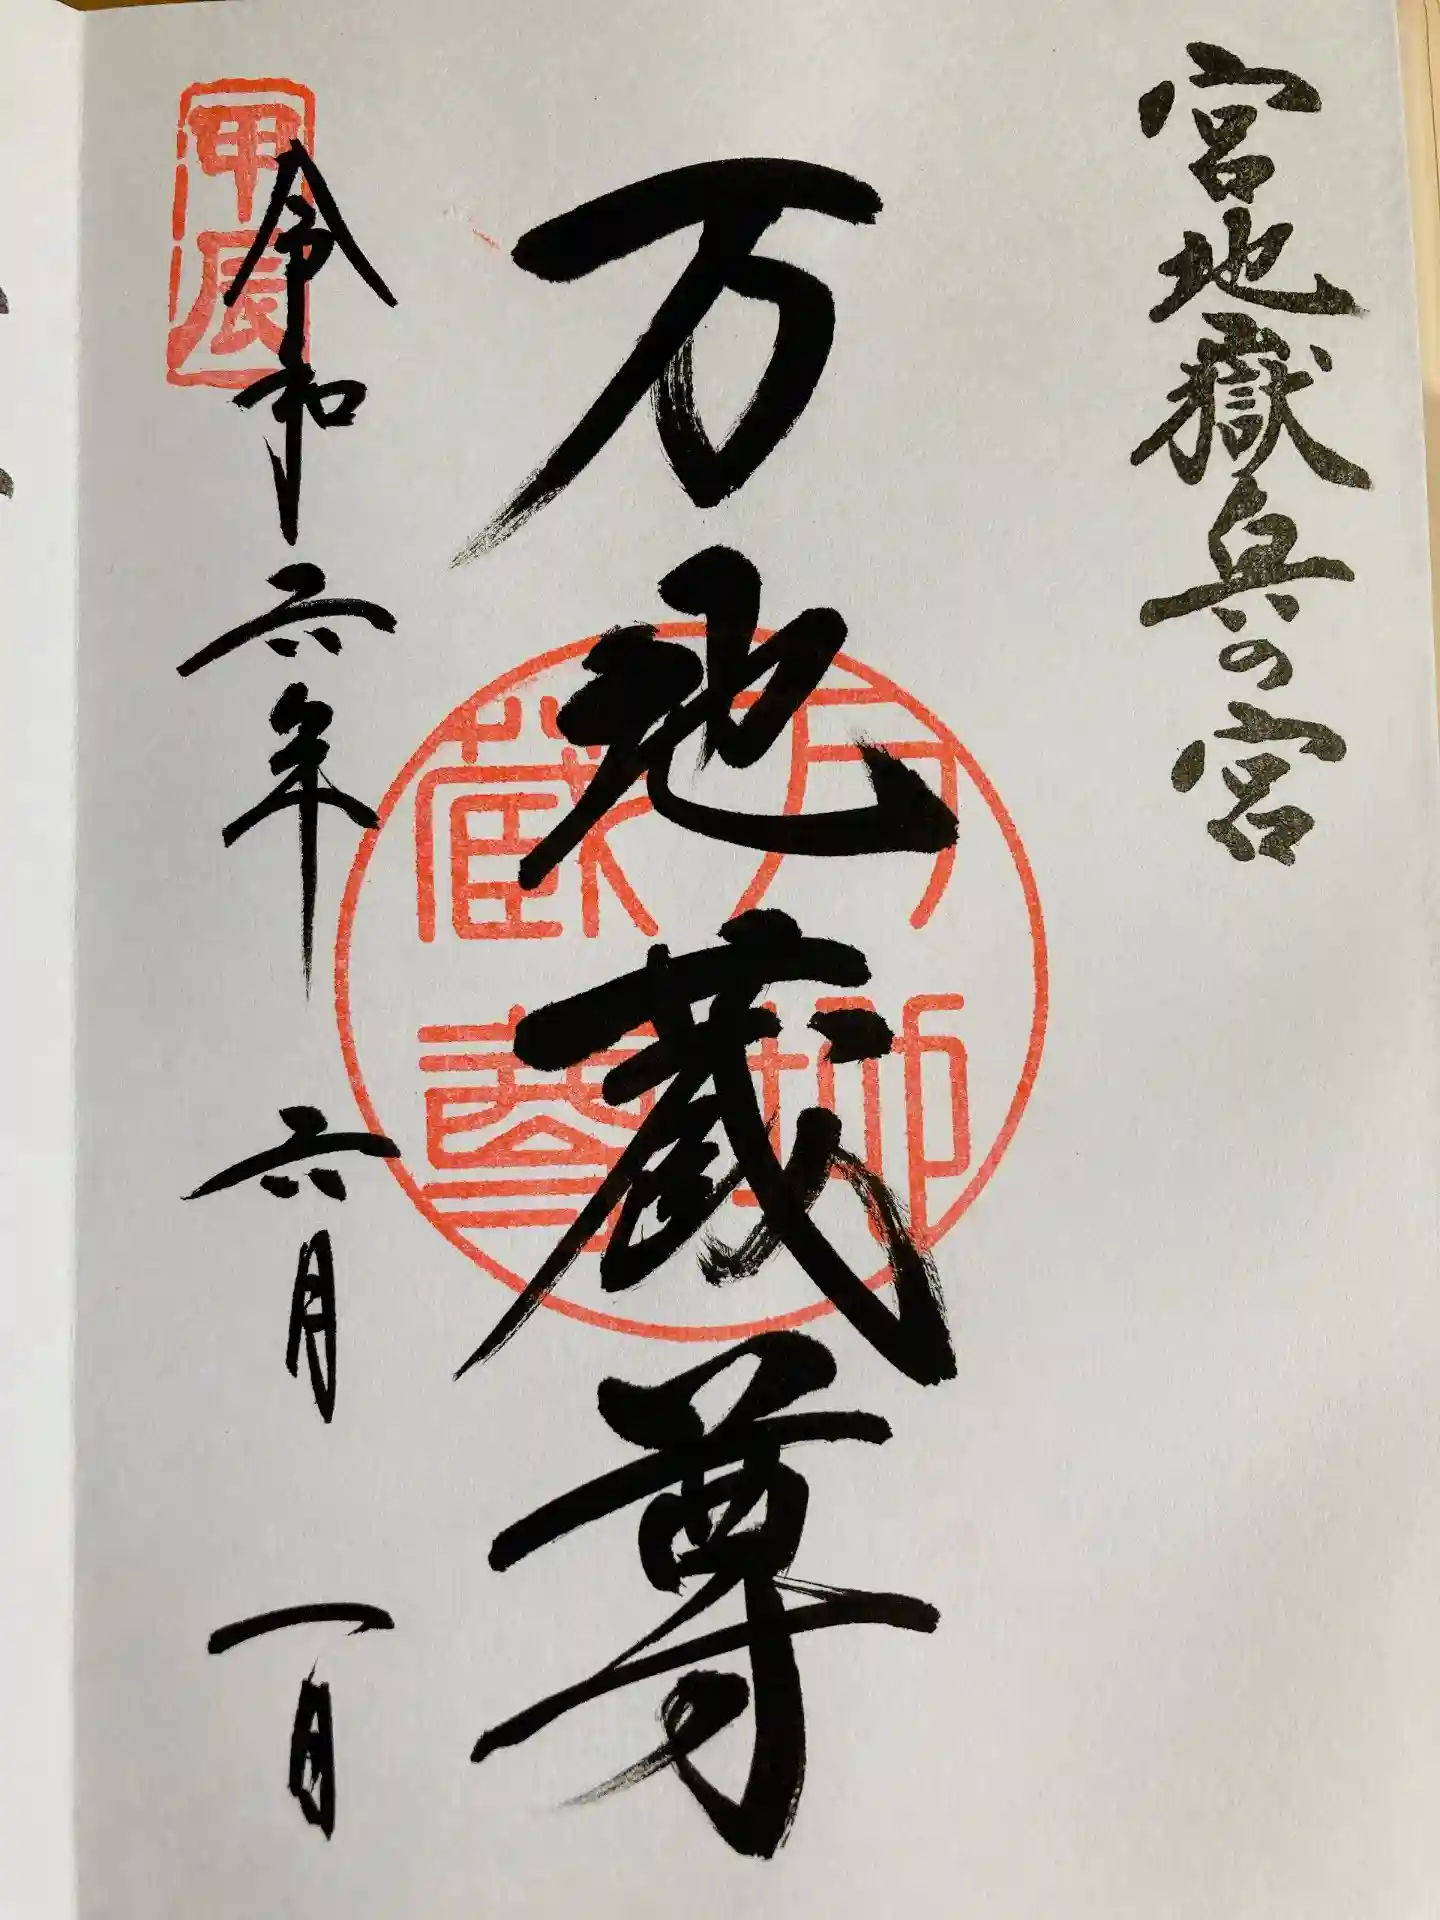 宮地嶽兵の宮
万地蔵尊
令和六年 六月 一日
甲辰
万地蔵尊